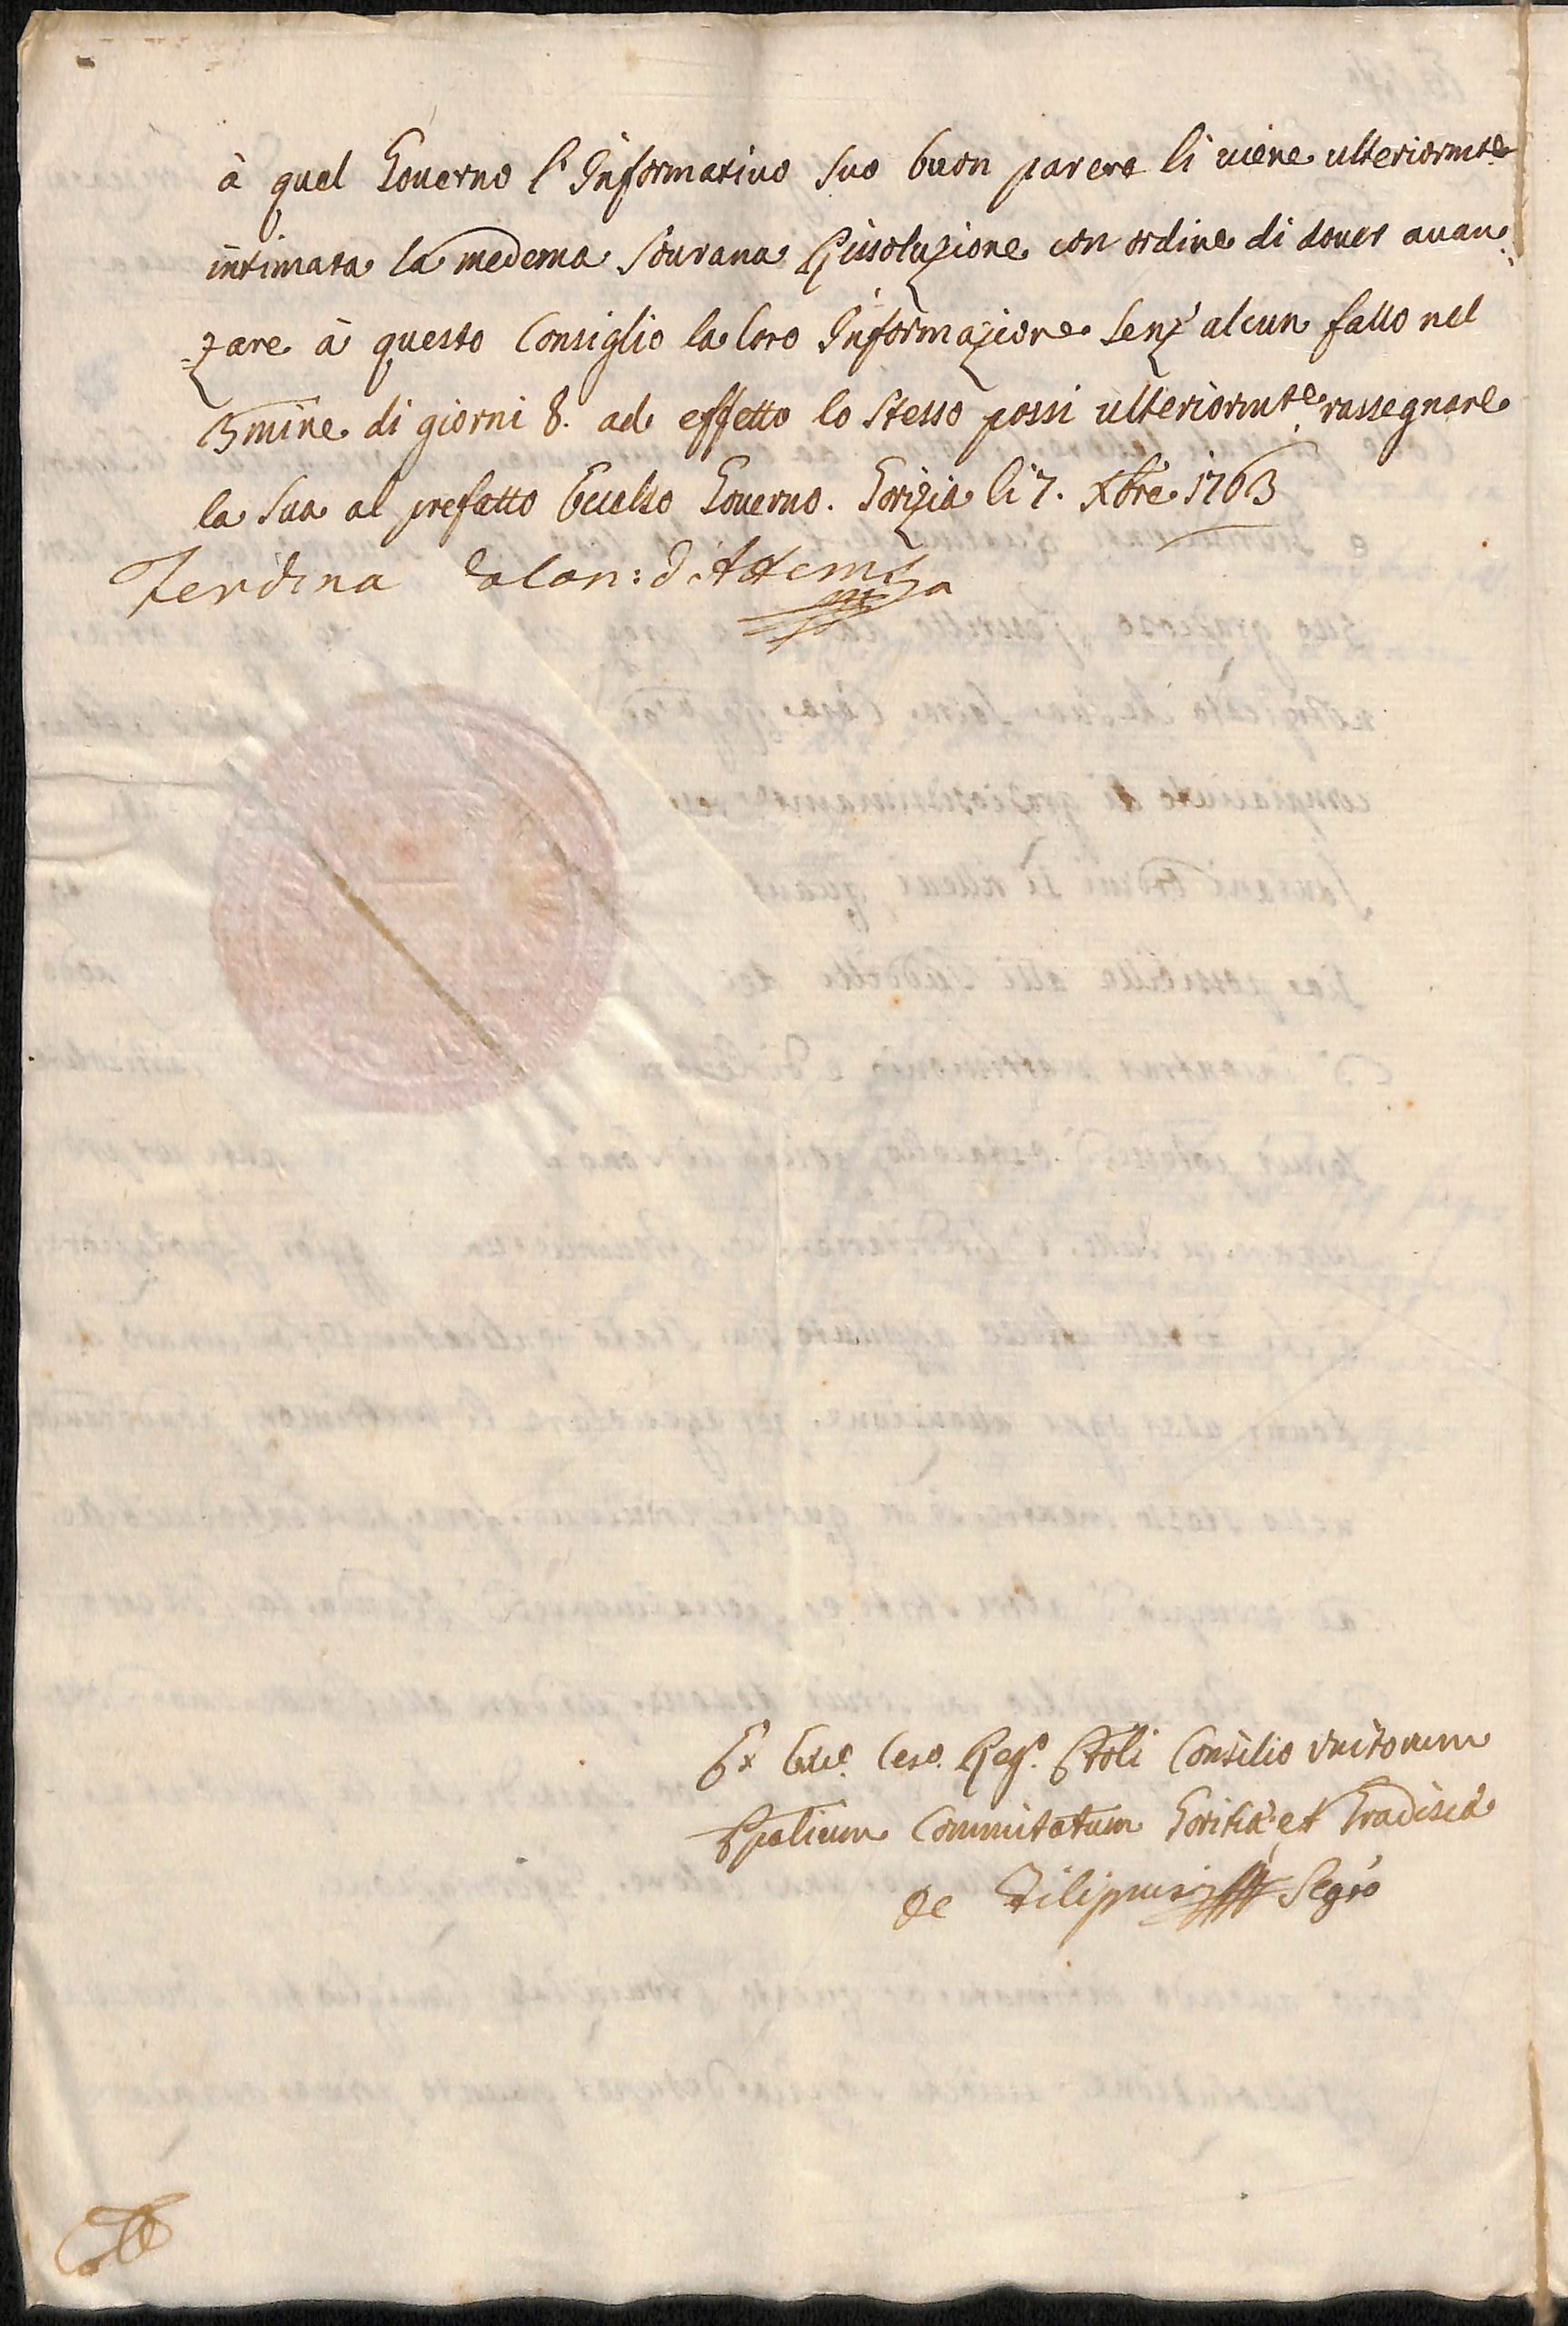 à quel Governo l'Informativo suo buon parere li viene ulteriormte
intimata la medema Sovrana Risoluzione con ordine di dover avan=
=zare à questo Consiglio la loro Informazione senz'alcun fallo nel
Tmine di giorni 8. ad effetto lo stesso possi ulteriormte rassegnare
la Sua al prefatto Eccelso Governo. Gorizia li 7. Xbre 1763
Ferdina d'Attemis
Ex Ces. Reg. Consilio Unitorum
Commitatum Goritiæ et Gradiscæ
de Filipuzi Segrō